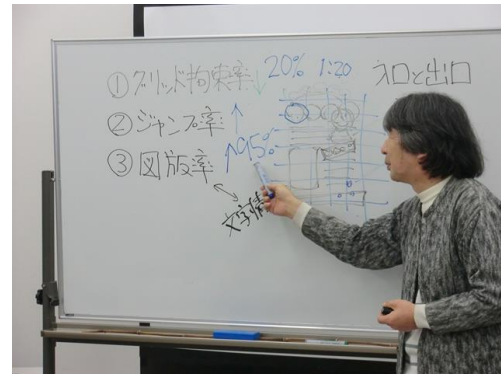 ①グリッド拘束率↓ 20% 1:20 入口と出口
②ジャンプ率
③図版率 ↑95%
文字情